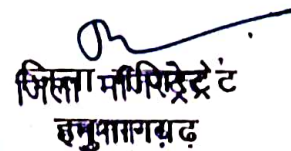 जिला मजिस्ट्रेट
हनुमानगढ़